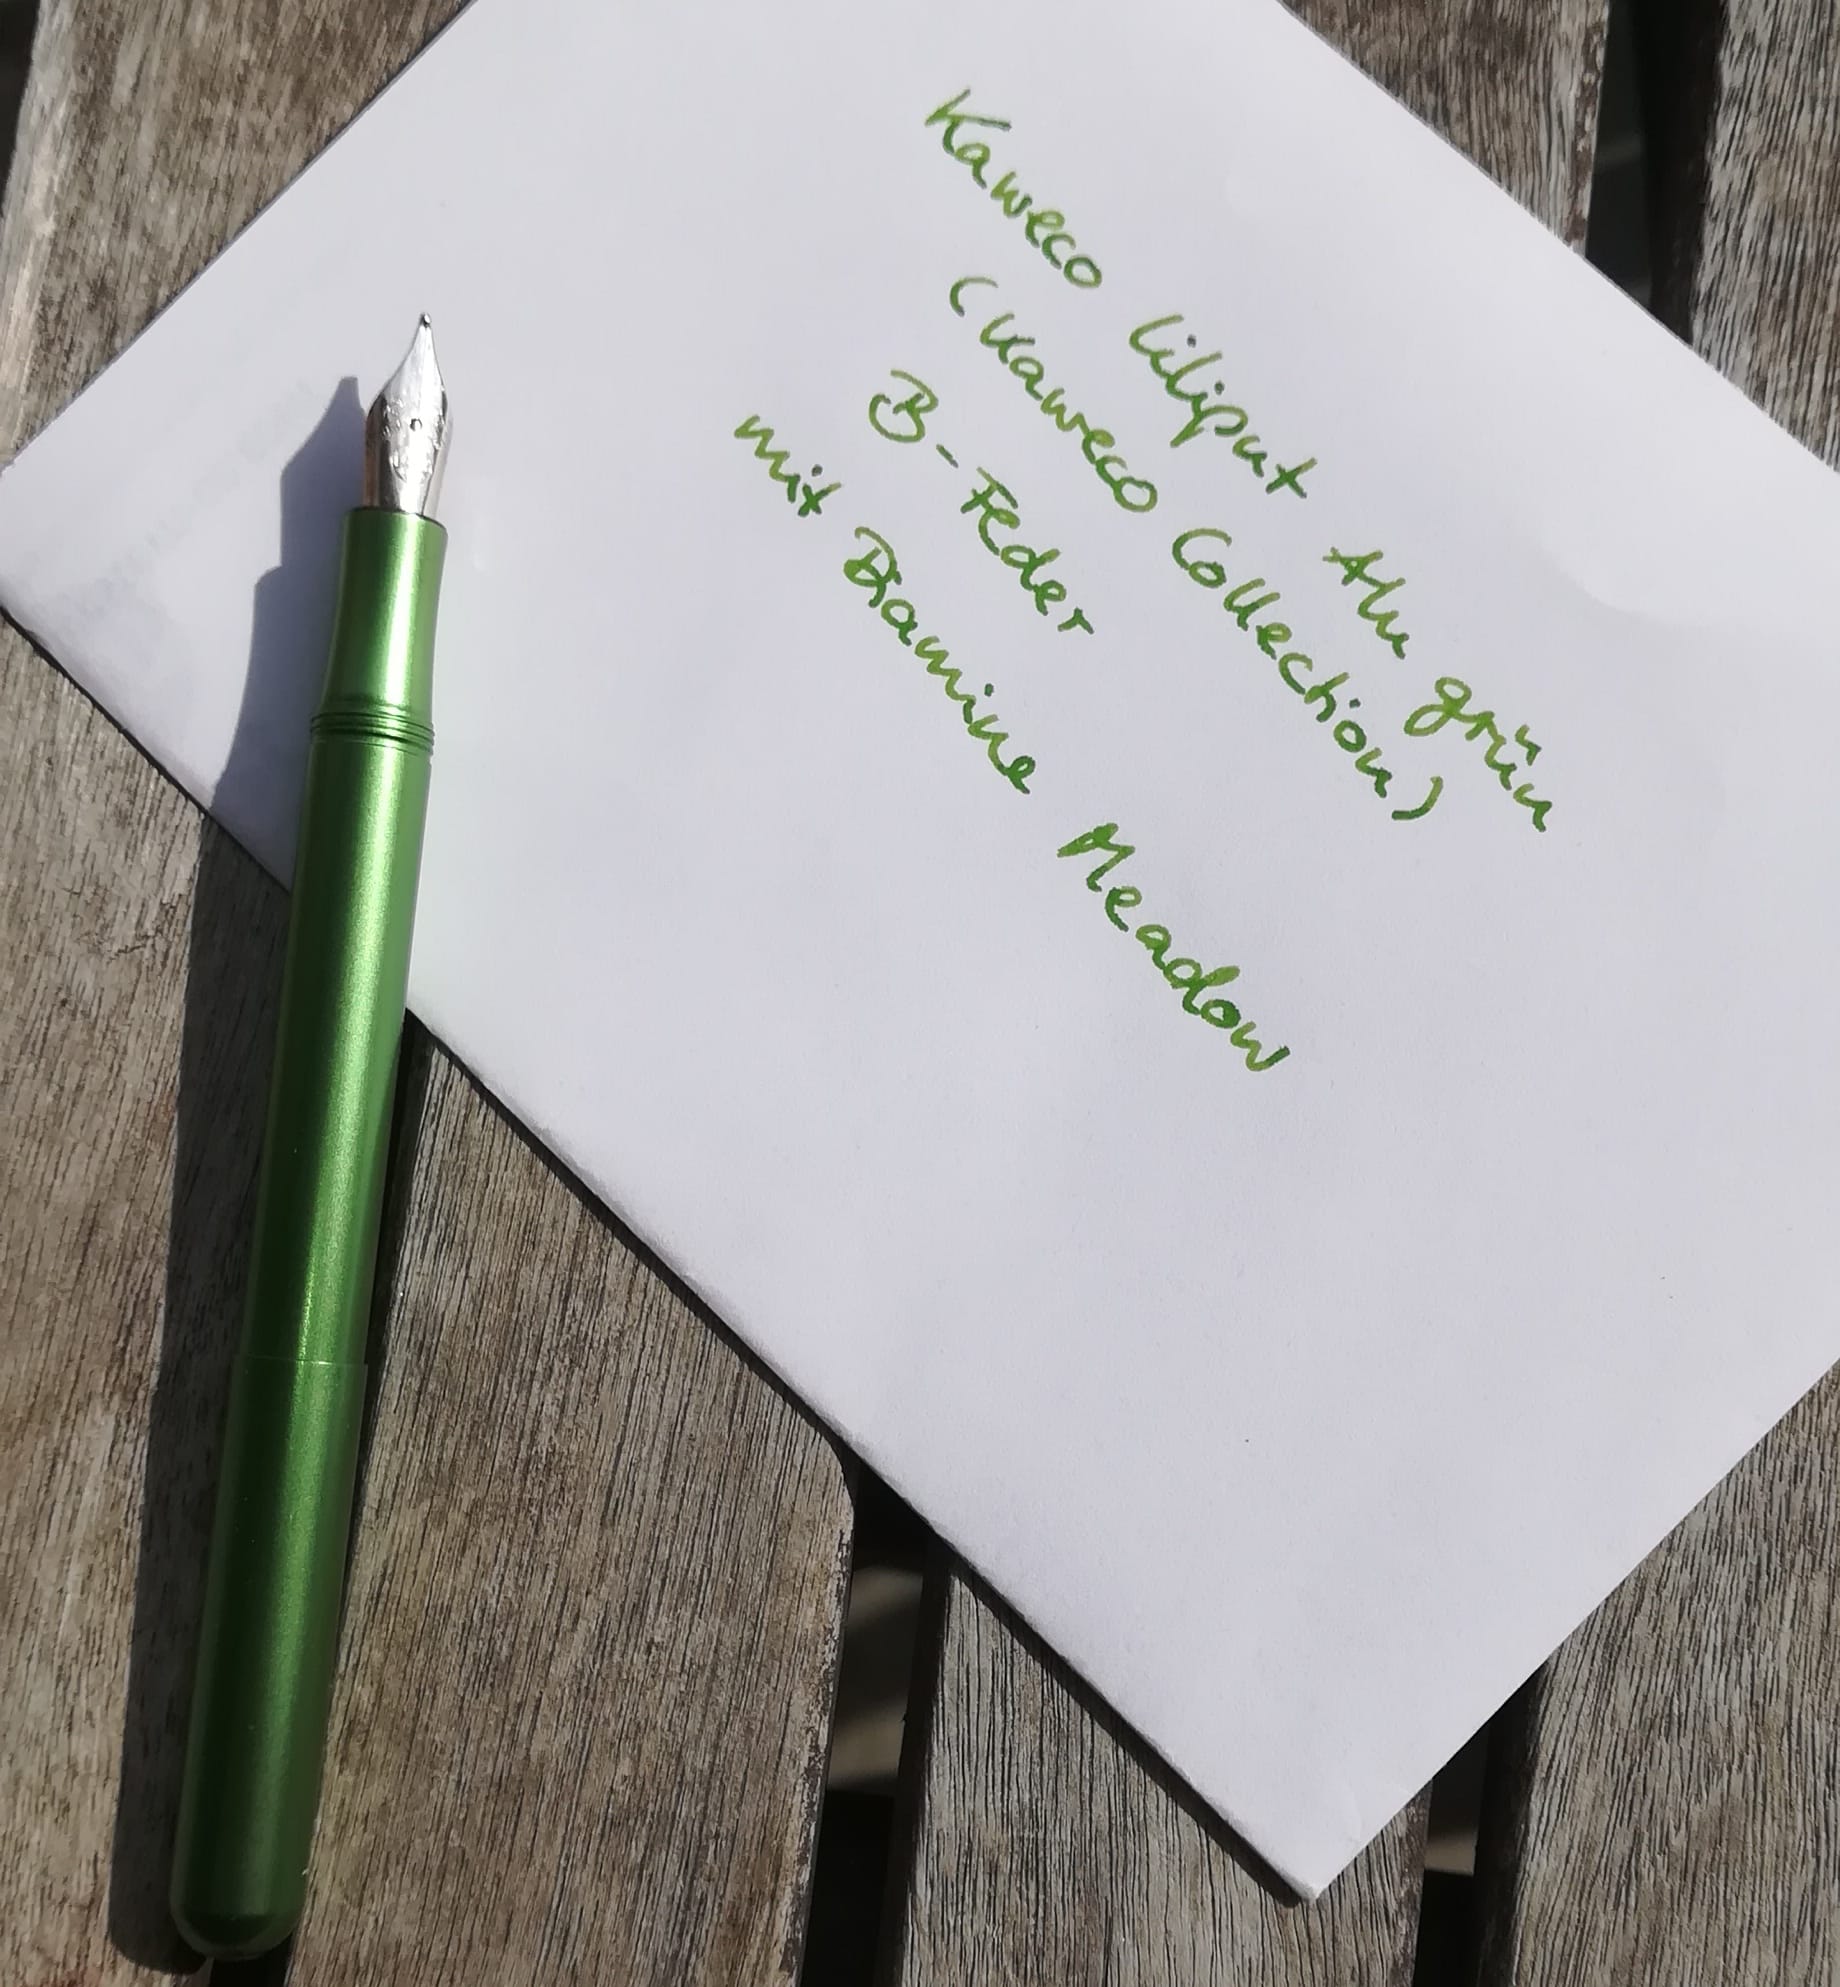 Kaweco Liliput Alu grün
(Kaweco Collection)
B-Feder
mit Diamine Meadow